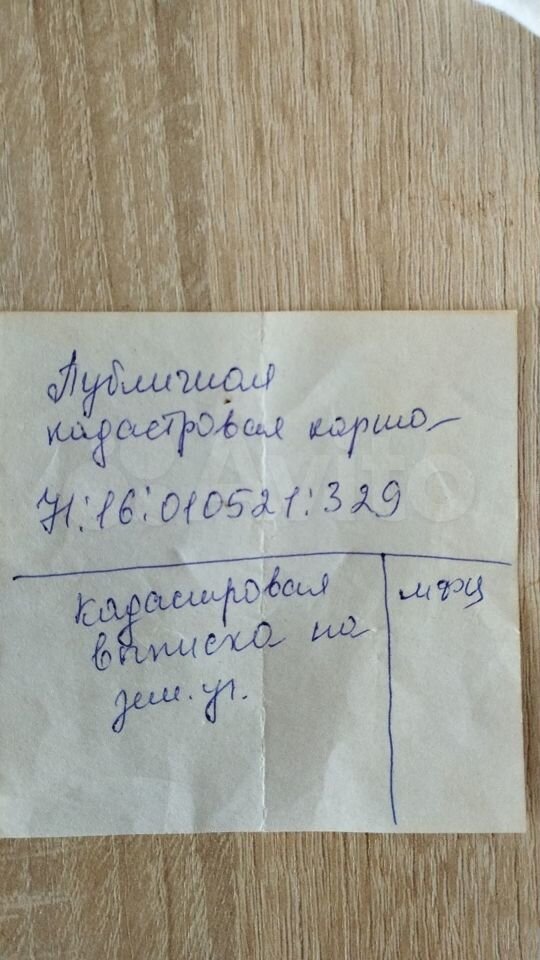 Публичная
кадастровая карта
71:16:010521:329
Кадастровая
выписка на
зем. уч.
МФЦ
Avito